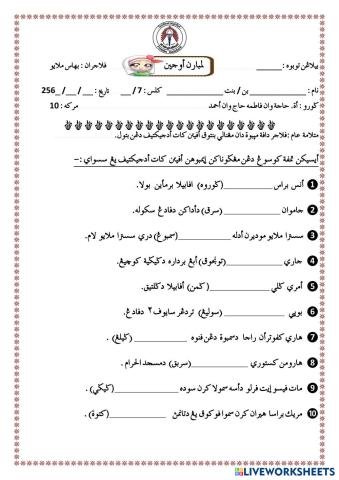 بيلاڠن توبوه : ______
لمبارن أوجين
فلاجران : بهاس ملايو
نام : ______________ بن / بنت ______________ كلس : 7 / ___ تاريخ : __ / __ /_256
ݢورو : أة. حاجة وان فاطمه حاج وان أحمد مركه : 10
متلامة عام : فلاجر دافة مپبوة دان مڠنالي بنتوق أفيتن كات أدجيكتيف دڠن بتول.
أيسيكن تمفة كوسوڠ دڠن مڠݢوناكن إيمبوهن أفيتن كات أدجيكتيف يڠ سسواي :-
1 أنس براس____________(كڬوروه) افابيلا برمأين بولا.
2 جاموان ____________(سرق) دأداكن دفادڠ سكوله.
3 سسترا ملايو موديرن أدله ____________(سمبوڠ) دري سسترا ملايو لام.
4 جاري ____________(تونجوق) أيڠ برداره دكيكية كوچيڠ.
5 أمري كلي ____________(كمن) أفابيلا دكلتيق.
6 بوپي ____________(سوليڠ) تردڠر سايوف٢ دفادڠ.
7 هاري كفوتراأن راجا دسمبوة دڠن فنوه ____________(كيلڠ) .
8 هارومن كستوري ____________(سربق) دمسجد الحرام .
9 مات فيسو إيت فرلو دأسه سمولا كرن سوده ____________(كيكي) .
10 مريك براسا هيران كرن سموا فوكوق يڠ دتانمڽ ____________(كتوة) .
LIVEWORKSHEETS